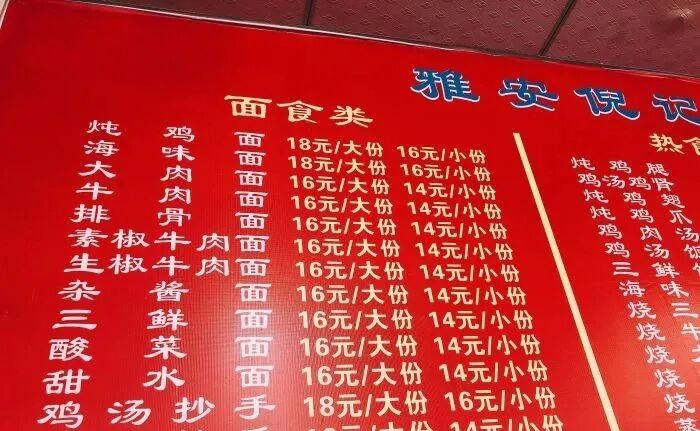 雅安倪记
面食类
炖鸡面 18元/大份 16元/小份
海味面 18元/大份 16元/小份
大肉面 16元/大份 14元/小份
牛肉面 16元/大份 14元/小份
排骨面 16元/大份 14元/小份
素椒牛肉面 16元/大份 14元/小份
生椒牛肉面 16元/大份 14元/小份
杂酱面 16元/大份 14元/小份
三鲜面 16元/大份 14元/小份
酸菜面 16元/大份 14元/小份
甜水面 16元/大份 14元/小份
鸡汤抄手 18元/大份 16元/小份
16元/大份 14元/小份
热
炖鸡腿
鸡汤鸡肾
炖鸡翅
炖鸡爪
鸡肉汤
鸡汤
三鲜
海味
烧三
烧牛
烧
烧